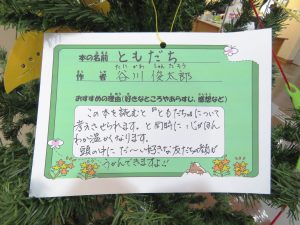 本の名前 ともだち
たにかわ しゅんたろう
作者 谷川 俊太郎
おすすめの理由(好きなところやあらすじ、感想など)
この本を読むと『ともだち』について
考えさせられます。と同時に心がほん
わか温かくなります。
頭の中に だ〜い好きな友だちの顔が
うかんできますよ!!